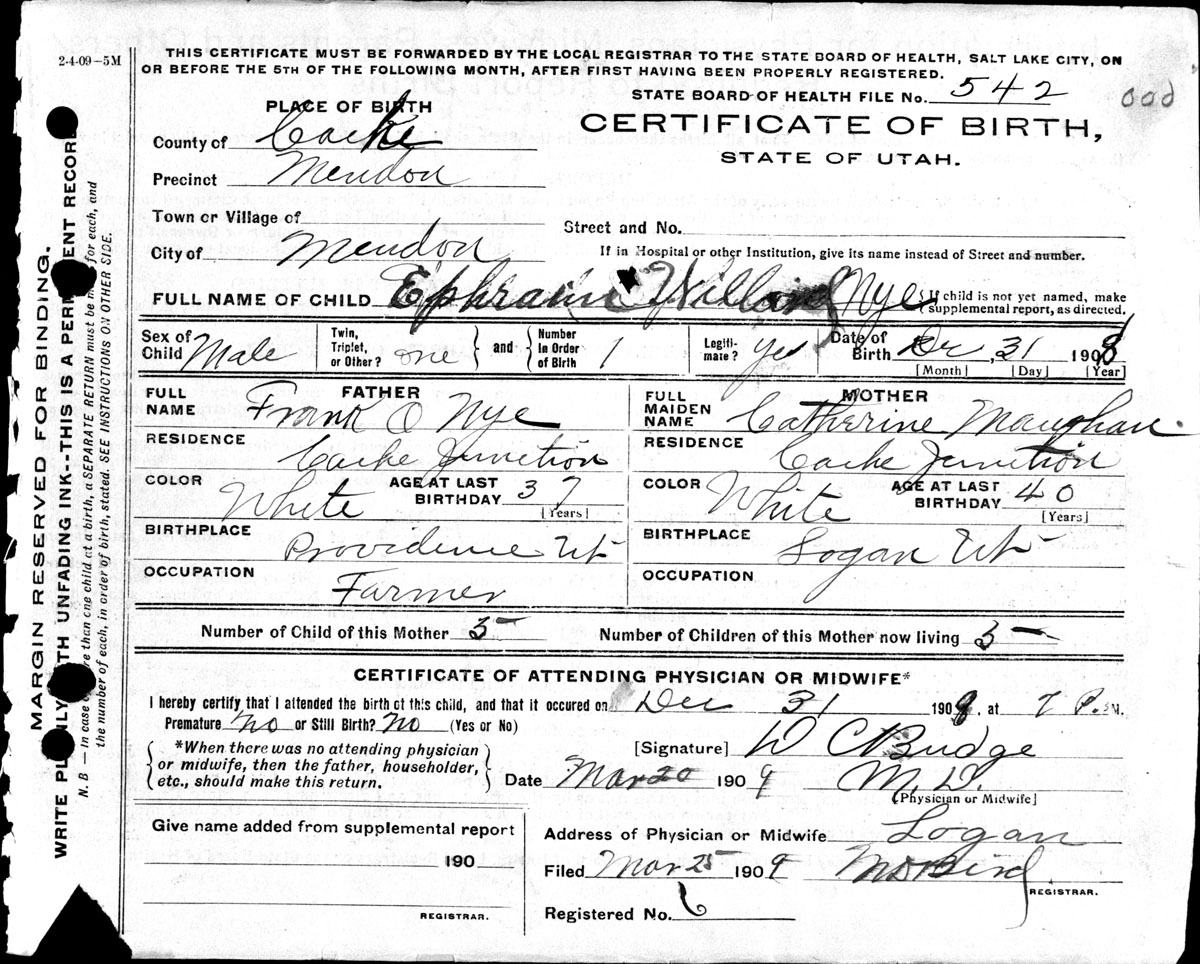 2-4-09—5M
THIS CERTIFICATE MUST BE FORWARDED BY THE LOCAL REGISTRAR TO THE STATE BOARD OF HEALTH, SALT LAKE CITY, ON
OR BEFORE THE 5TH OF THE FOLLOWING MONTH, AFTER FIRST HAVING BEEN PROPERLY REGISTERED.
STATE BOARD OF HEALTH FILE No. 542
PLACE OF BIRTH
CERTIFICATE OF BIRTH,
STATE OF UTAH.
County of Cache
Precinct Mendon
Town or Village of
Street and No.
City of Mendon
If in Hospital or other Institution, give its name instead of Street and number.
FULL NAME OF CHILD Ephraim Willard Nye { If child is not yet named, make supplemental report, as directed.
Sex of Child Male Twin, Triplet, or Other? one } and { Number In Order of Birth 1 Legiti-mate? yes Date of Birth Dec, 31 1908
[Month] [Day] [Year]
FATHER
FULL NAME Frank O Nye
RESIDENCE Cache Junction
COLOR White AGE AT LAST BIRTHDAY 37
[Years]
BIRTHPLACE Providence Ut
OCCUPATION Farmer
MOTHER
FULL MAIDEN NAME Catherine Maughan
RESIDENCE Cache Junction
COLOR White AGE AT LAST BIRTHDAY 40
[Years]
BIRTHPLACE Logan Ut
OCCUPATION
Number of Child of this Mother 5 Number of Children of this Mother now living 5
CERTIFICATE OF ATTENDING PHYSICIAN OR MIDWIFE*
I hereby certify that I attended the birth of this child, and that it occured on Dec 31 1908, at 7 P. M.
Premature No or Still Birth? No (Yes or No)
*When there was no attending physician
or midwife, then the father, householder,
etc., should make this return.
[Signature] D C Budge
Date Mar 20 1909 M. D.
(Physician or Midwife]
Give name added from supplemental report
190
REGISTRAR.
Address of Physician or Midwife Logan
Filed Mar 25 1909 Bird
REGISTRAR.
Registered No. 6
MARGIN RESERVED FOR BINDING.
WRITE UNFADING INK--THIS IS A RECORD
N. B — In case than one child at a birth, a SEPARATE RETURN must be for each, and
the number of each, in order of birth, stated. SEE INSTRUCTIONS ON OTHER SIDE.